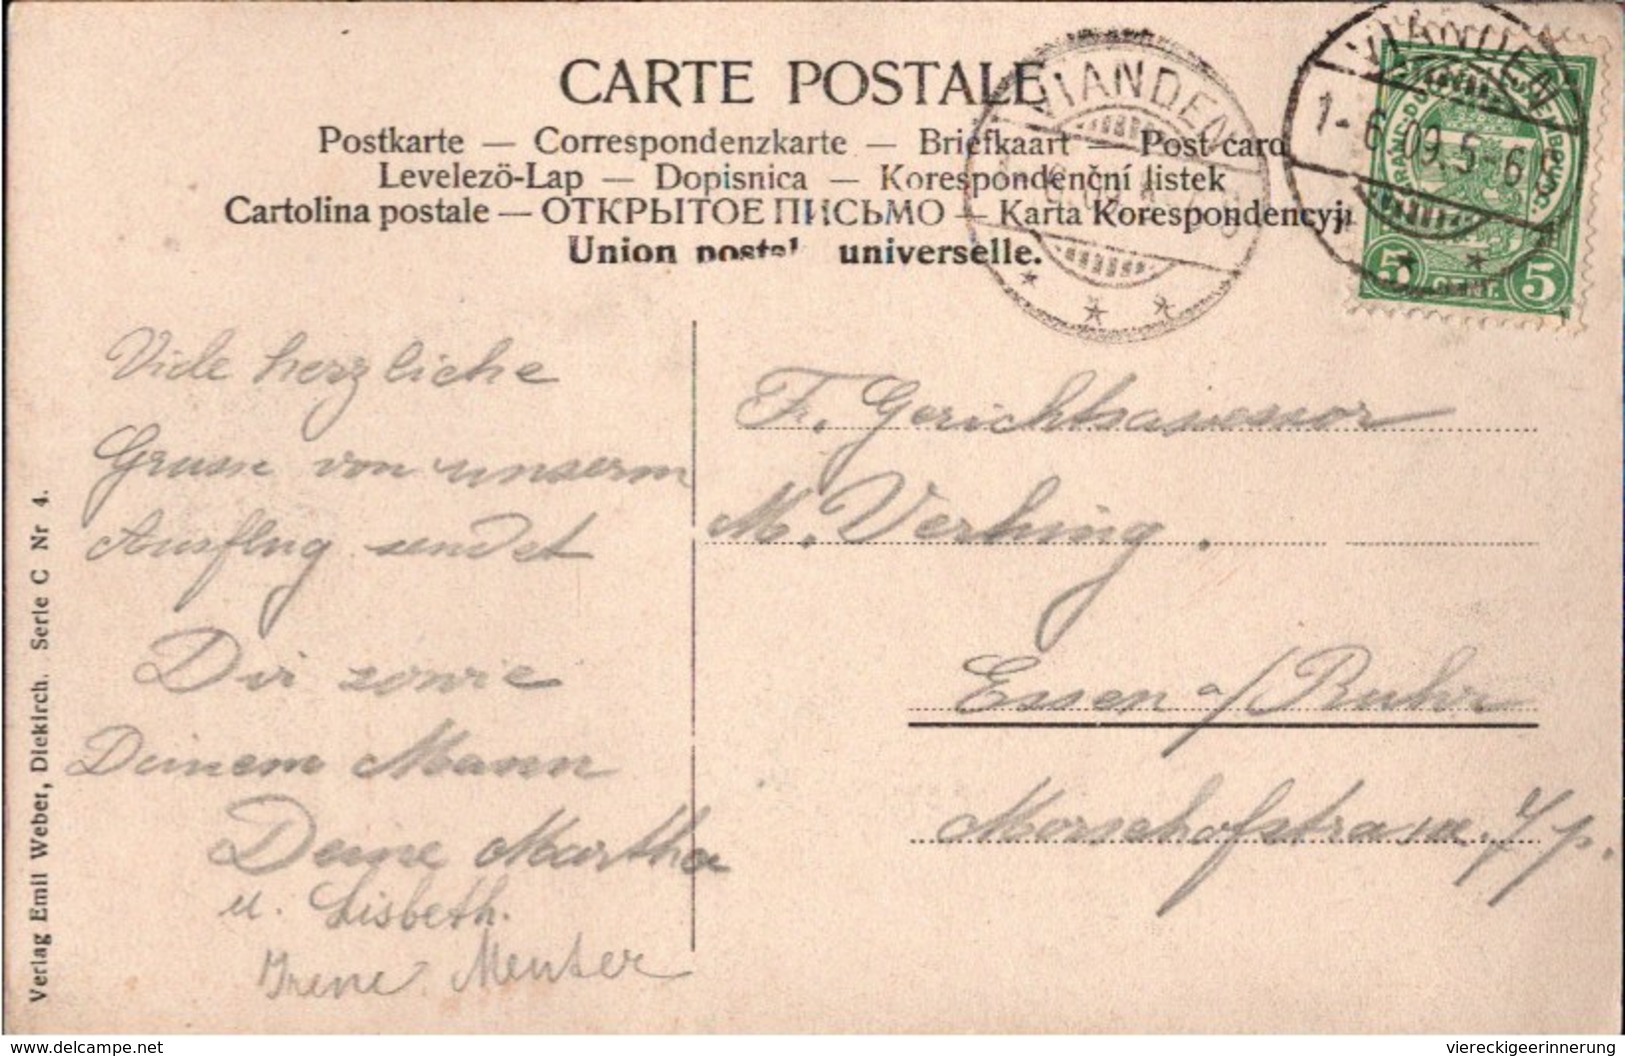 CARTE POSTALE
Postkarte — Correspondenzkarte — Briefkaart — Post card
Levelező-Lap — Dopisnica — Korespondenční listek
Cartolina postale — ОТКРЫТОЕ ПИСЬМО — Karta Korespondencyji
Union postale universelle.
VIANDEN
VIANDEN
1-6.09.5-6 S
5 CENT. 5
Viele herzliche
Grusse von unserm
Ausflug sendet
Dir sowie
Deinem Mann
Deine Martha
u. Lisbeth.
Irene Menser
Fr. Gerichtsassessor
M. Verhing.
Essen a/Ruhr
Morsehofstrasse
Verlag Emil Weber, Diekirch. Serie C Nr 4.
delcampe.net
viereckigeerinnerung